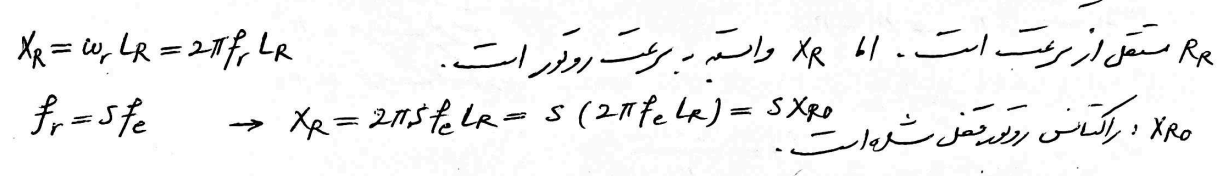 R_R مستقل از سرعت است. اما X_R وابسته به سرعت روتور است. X_R = ω_r L_R = 2π f_r L_R
f_r = s f_e → X_R = 2π s f_e L_R = s (2π f_e L_R) = s X_R0
X_R0 : راکتانس روتور قفل شده است.